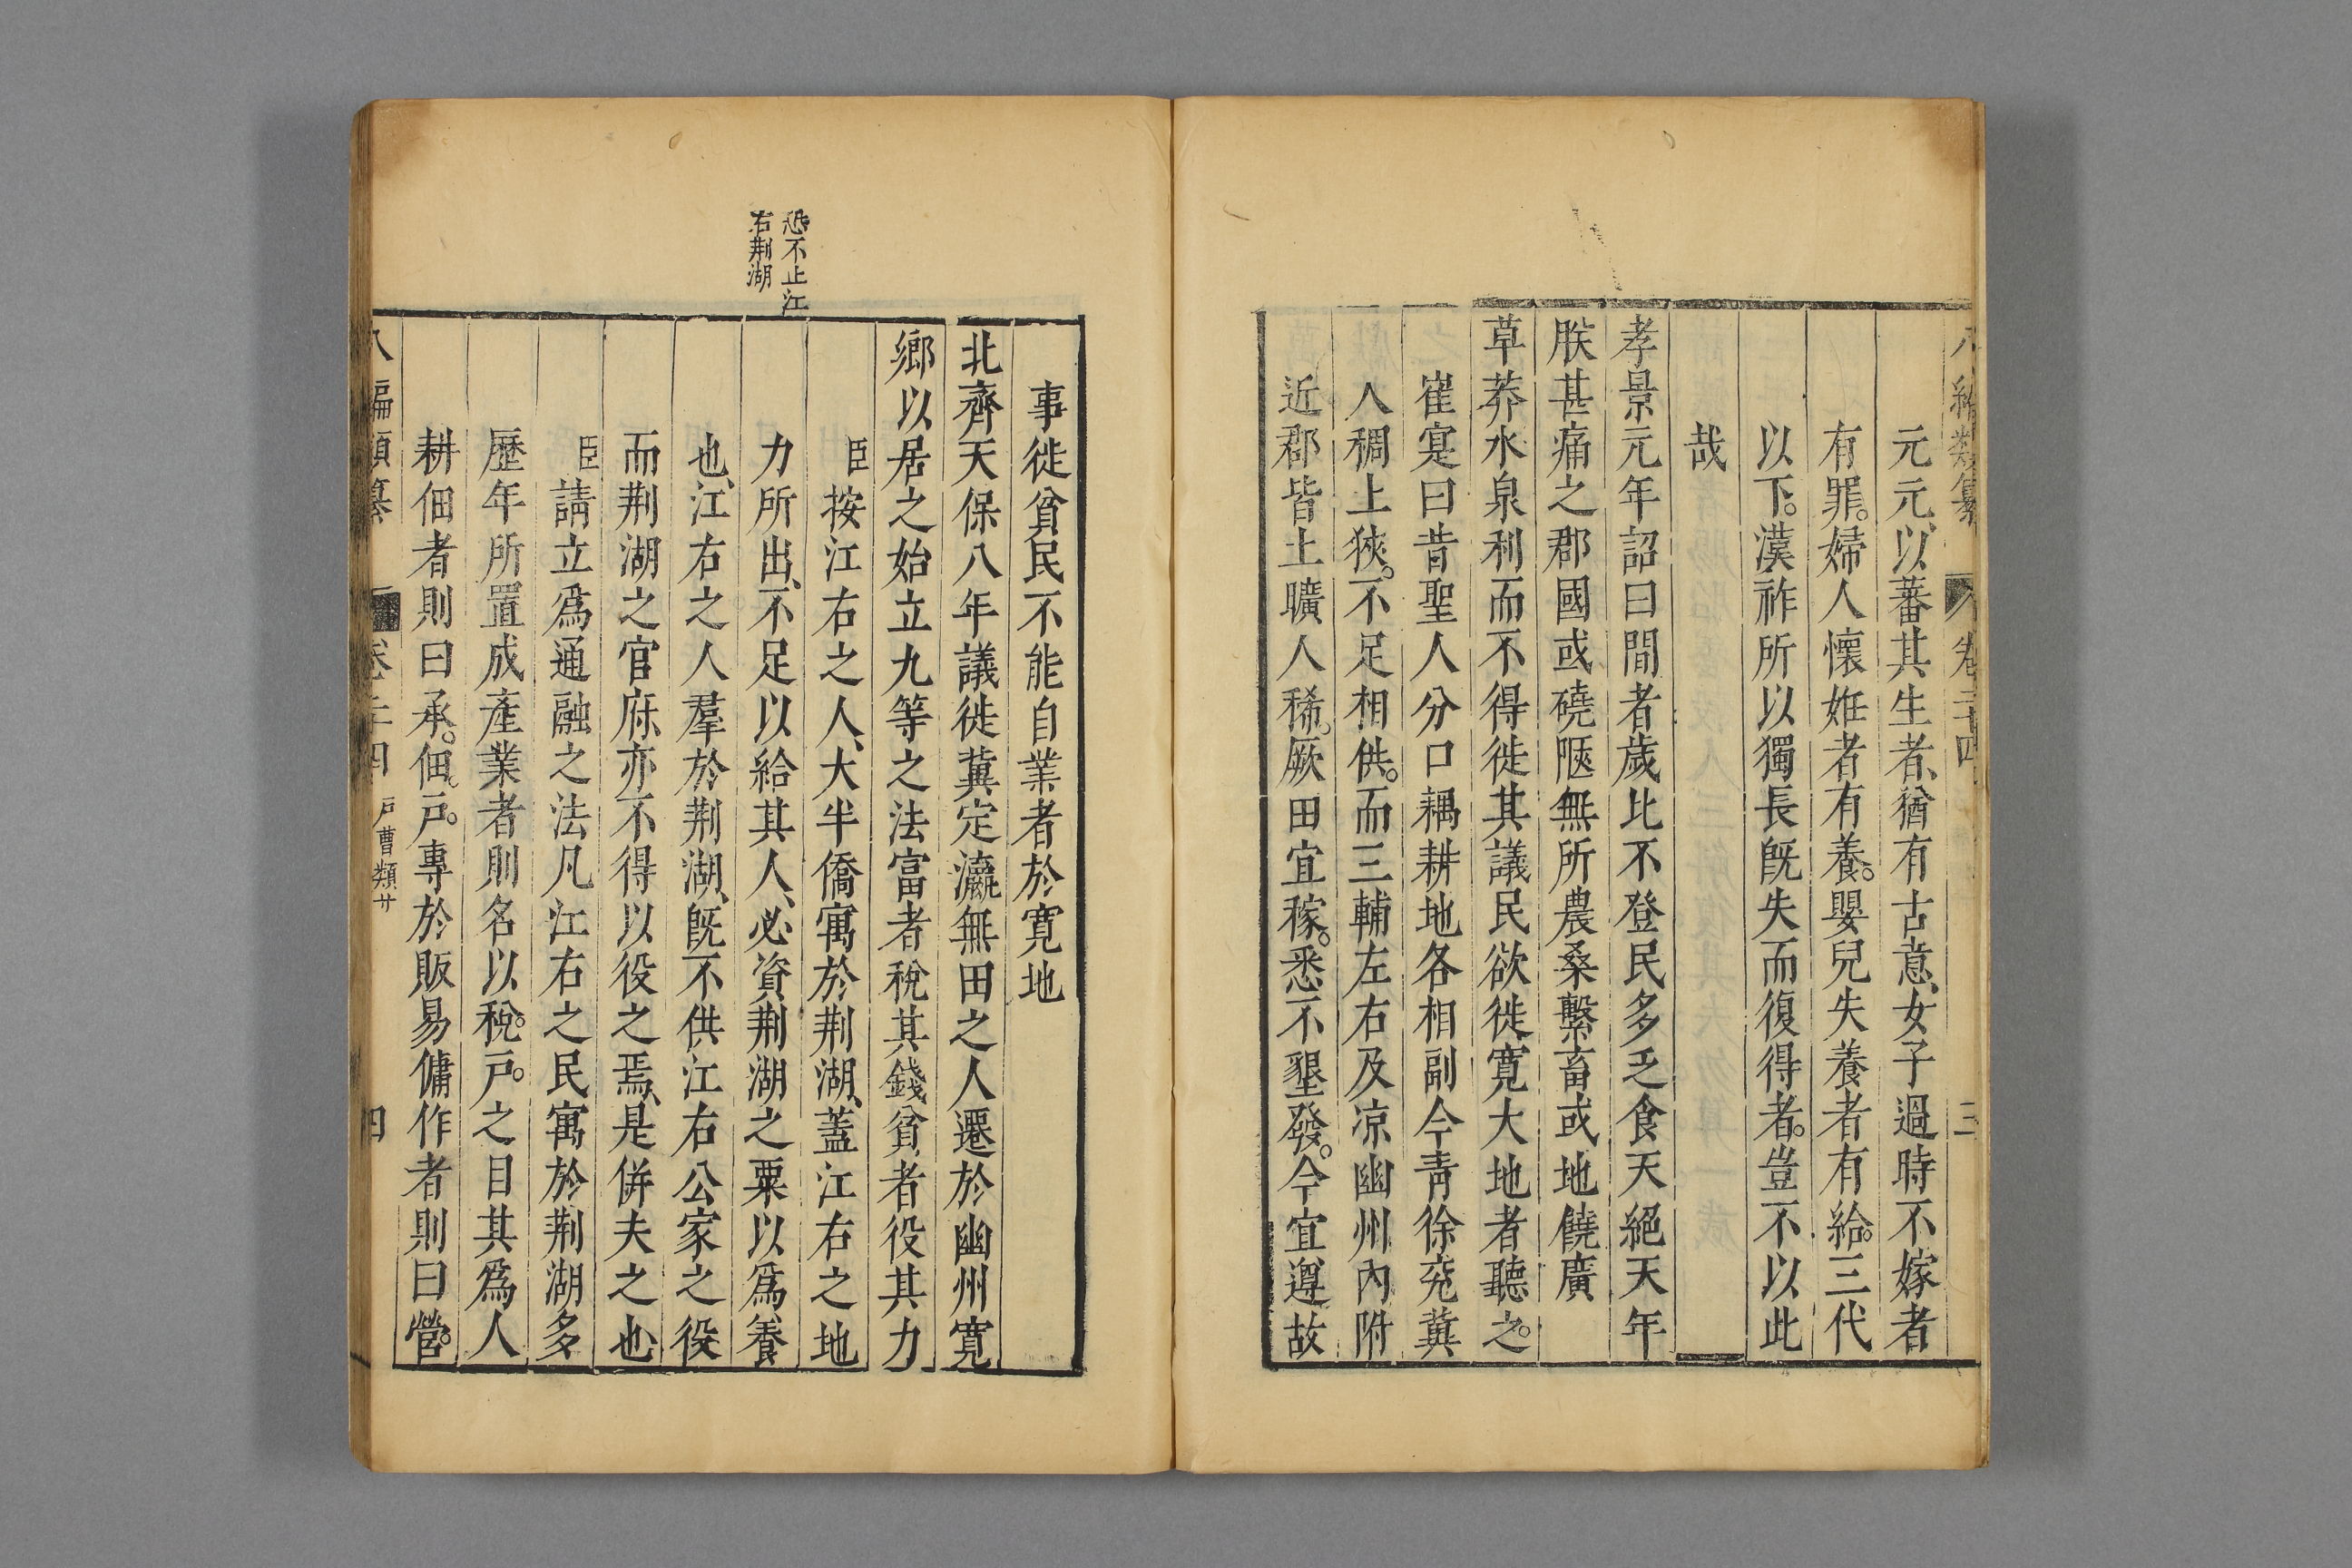 八編類纂 卷二十四 三
元元、以蕃其生者、猶有古意、女子過時不嫁者
有罪。婦人懷姙者有養。嬰兒失養者有給。三代
以下。漢祚所以獨長旣失而復得者。豈不以此
哉
孝景元年詔曰間者歲比不登民多乏食夭絕天年
朕甚痛之郡國或磽陿無所農桑繫畜或地饒廣
草莽水泉利而不得徙其議民欲徙寛大地者聽之。
崔寔曰昔聖人分口耦耕地各相副今青徐兖冀
人稠土狹。不足相供。而三輔左右及凉幽州內附
近郡皆土曠人稀。厥田宜稼。悉不墾發。今宜遵故
事徙貧民不能自業者於寛地
北齊天保八年議徙冀定瀛無田之人遷於幽州寛
鄉以居之始立九等之法富者稅其錢貧者役其力
恐不止江
右荆湖
臣按江右之人、大半僑寓於荆湖、蓋江右之地
力所出、不足以給其人、必資荆湖之粟以爲養
也、江右之人羣於荆湖、旣不供江右公家之役
而荆湖之官府、亦不得以役之焉、是併失之也、
臣請立爲通融之法凡江右之民寓於荆湖多
歷年所置成產業者則名以稅。戶。之目其爲人
耕佃者則曰承。佃。戶。專於販易傭作者則曰營。
八編類纂 卷二十四 戶曹類廿 四